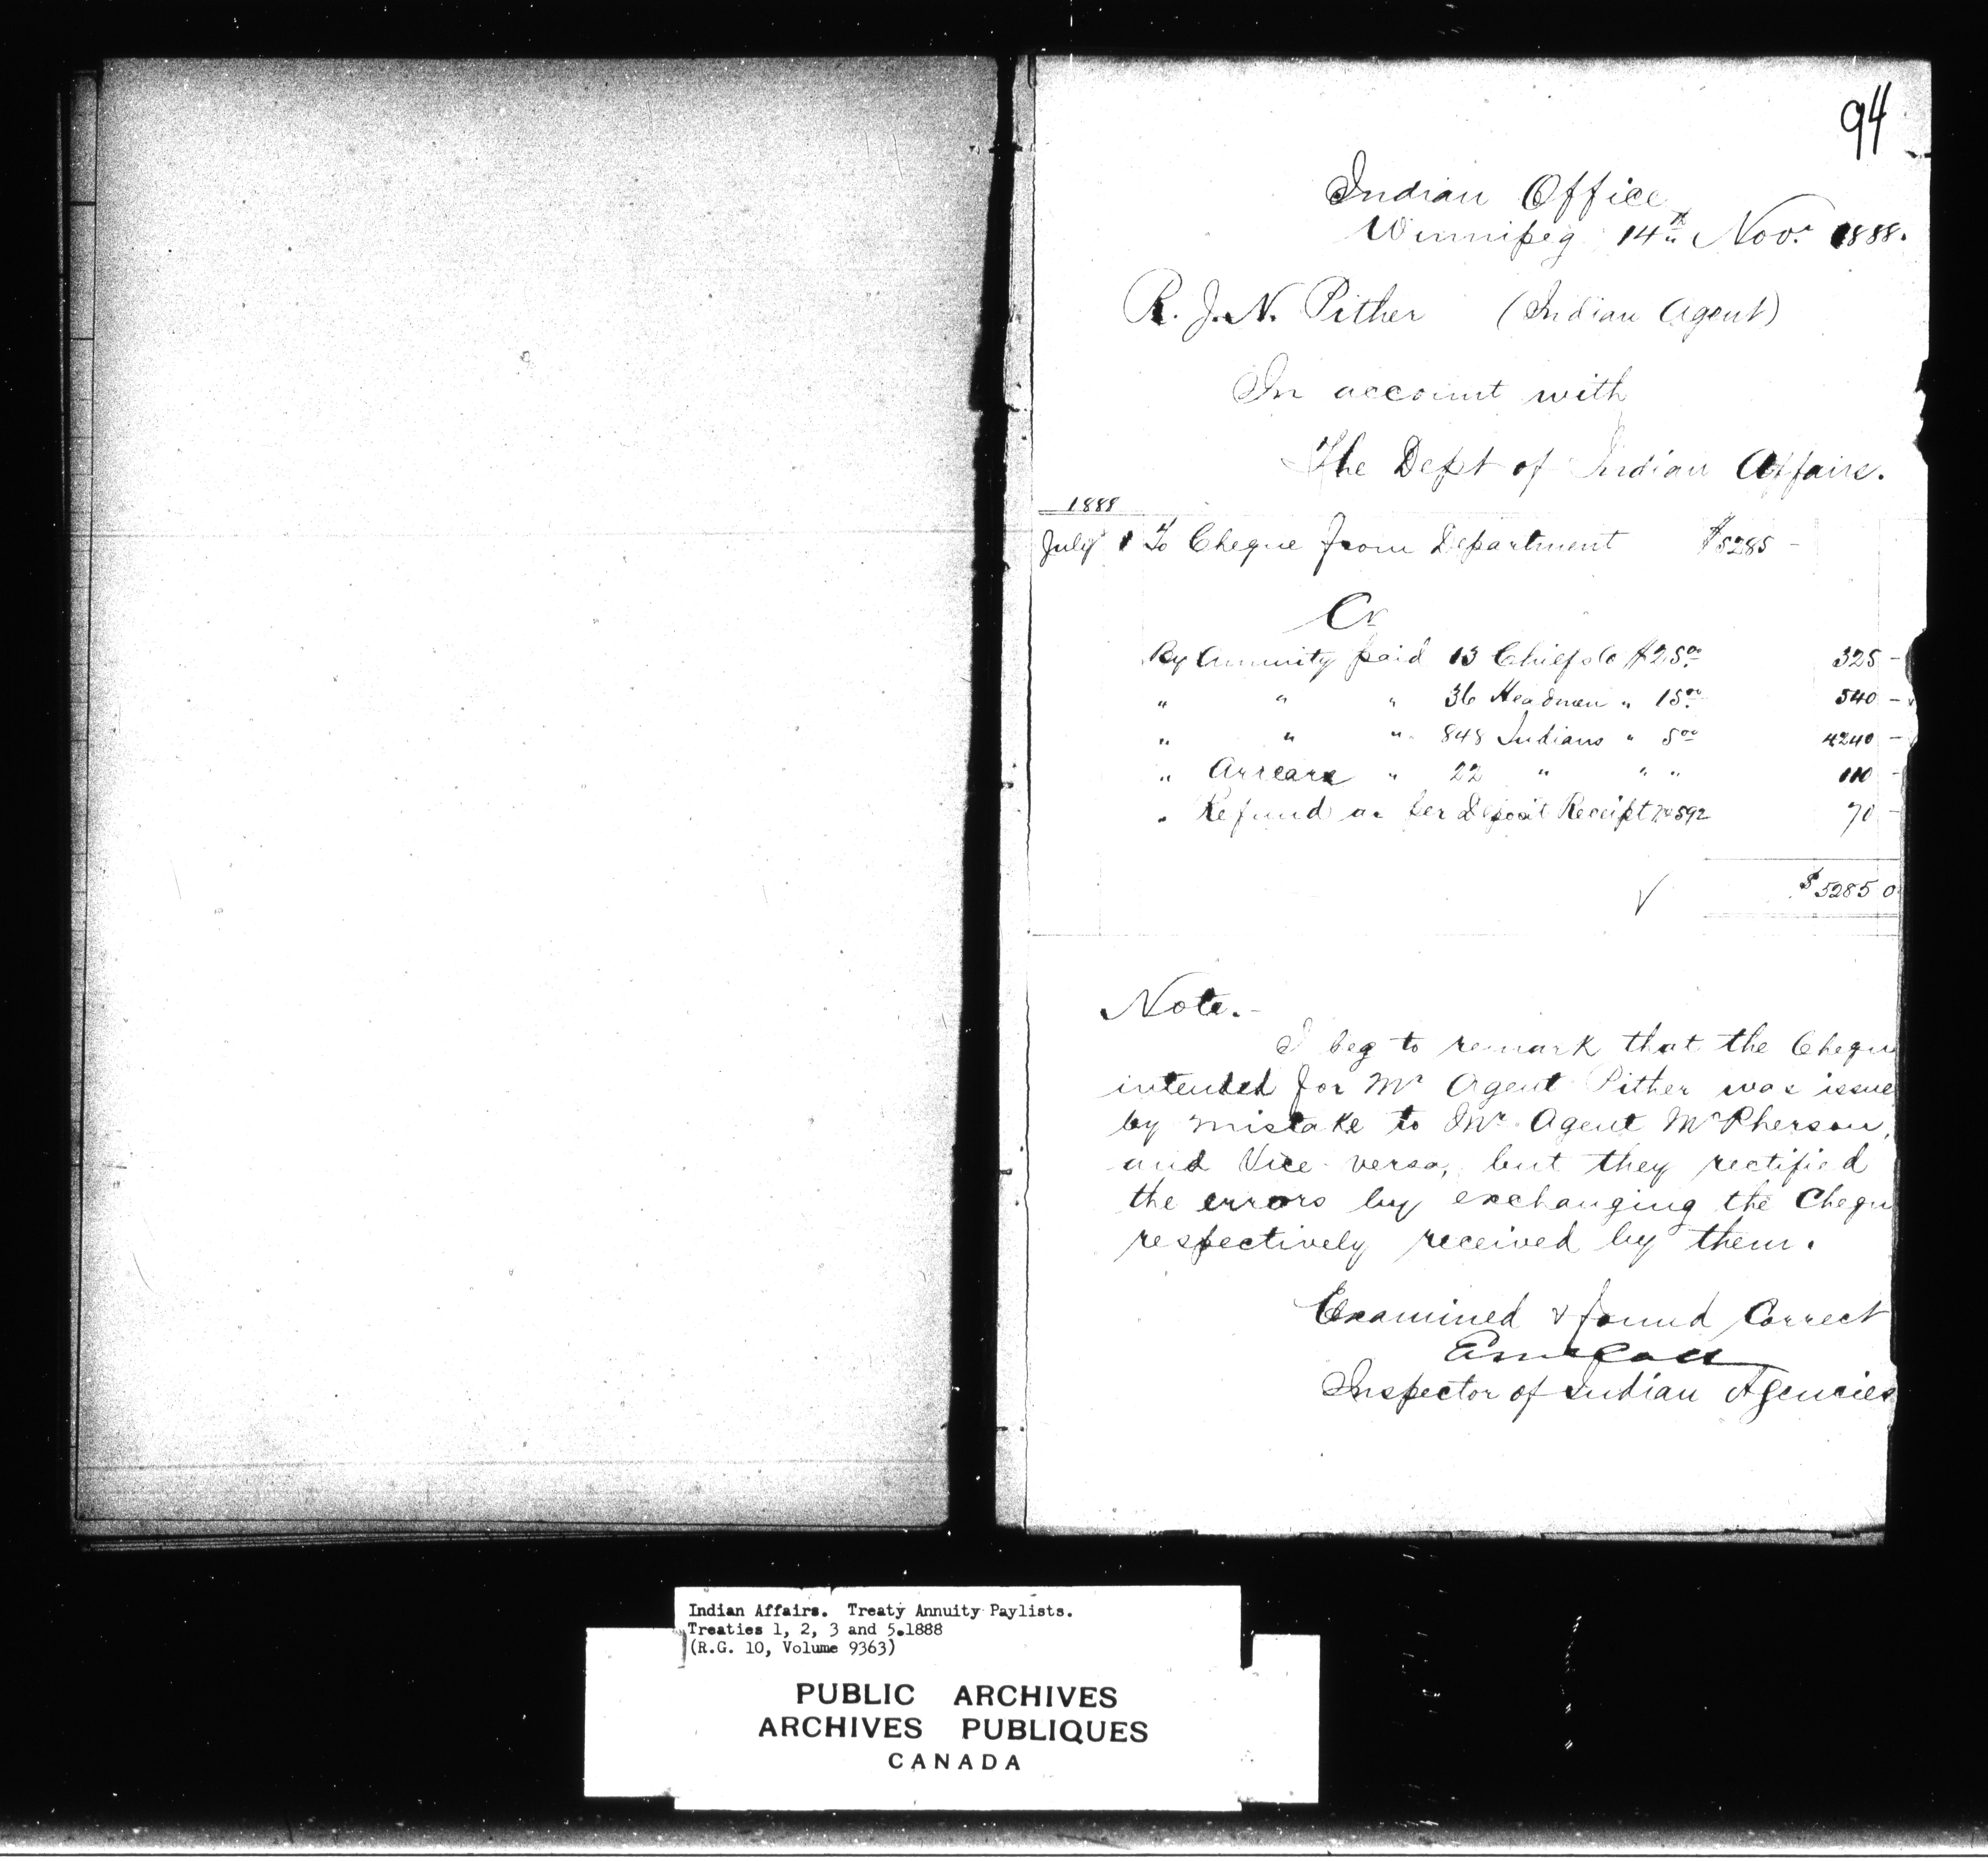 94
Indian Office
Winnipeg 14th Nov. 1888.
R. J. N. Pither (Indian Agent)
In account with
The Dept of Indian Affairs.
1888
July 1 To Cheque from Department $5285 -
Cr
By Annuity paid 13 Chiefs @ $25.00 325 -
" " " 36 Headmen " 15.00 540 -
" " " 848 Indians " 5.00 4240 -
" Arrears " 22 " " " 110 -
" Refund as per Deposit Receipt No 592 70 -
√ $5285 0
Note.-
I beg to remark that the Chequ
intended for Mr Agent Pither was issue
by mistake to Mr Agent McPherson,
and Vice versa, but they rectified
the errors by exchanging the Chequ
respectively received by them.
Examined & found Correct
Inspector of Indian Agencies
Indian Affairs. Treaty Annuity Paylists.
Treaties 1, 2, 3 and 5.1888
(R.G. 10, Volume 9363)
PUBLIC ARCHIVES
ARCHIVES PUBLIQUES
CANADA